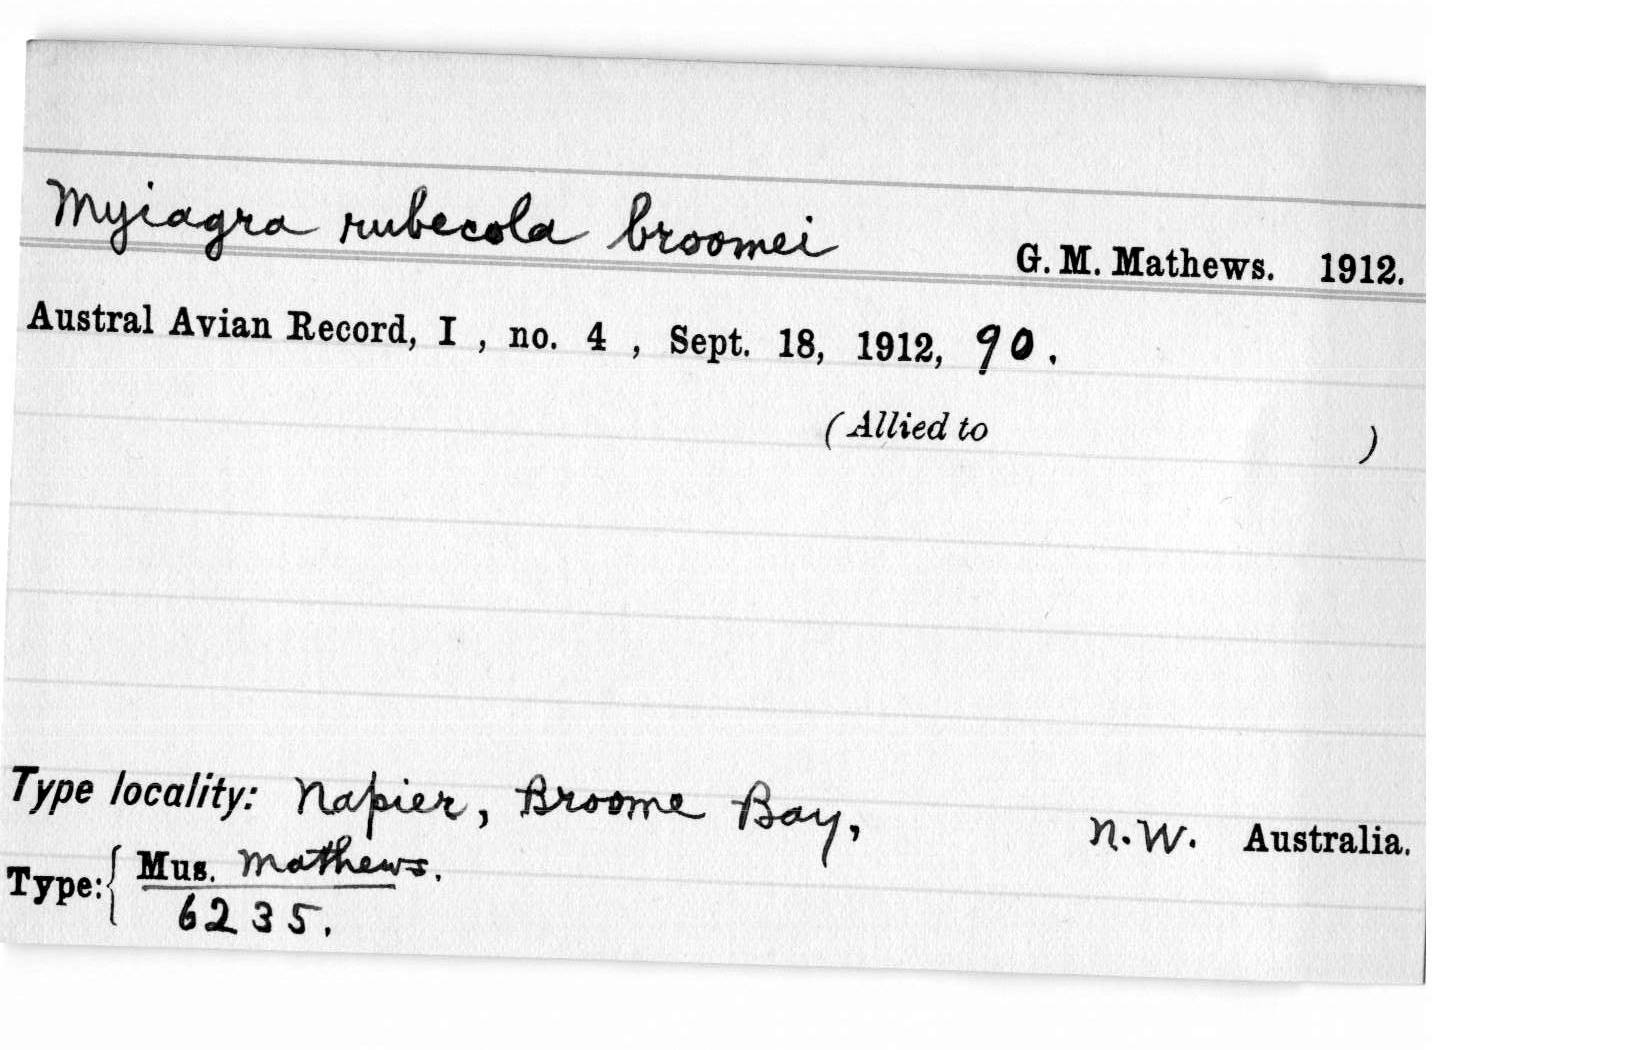 Myiagra rubecola broomei G. M. Mathews. 1912.
Austral Avian Record, I , no. 4 , Sept. 18, 1912, 90.
(Allied to )
Type locality: Napier, Broome Bay, N.W. Australia.
Type: { Mus. Mathews.
6235.